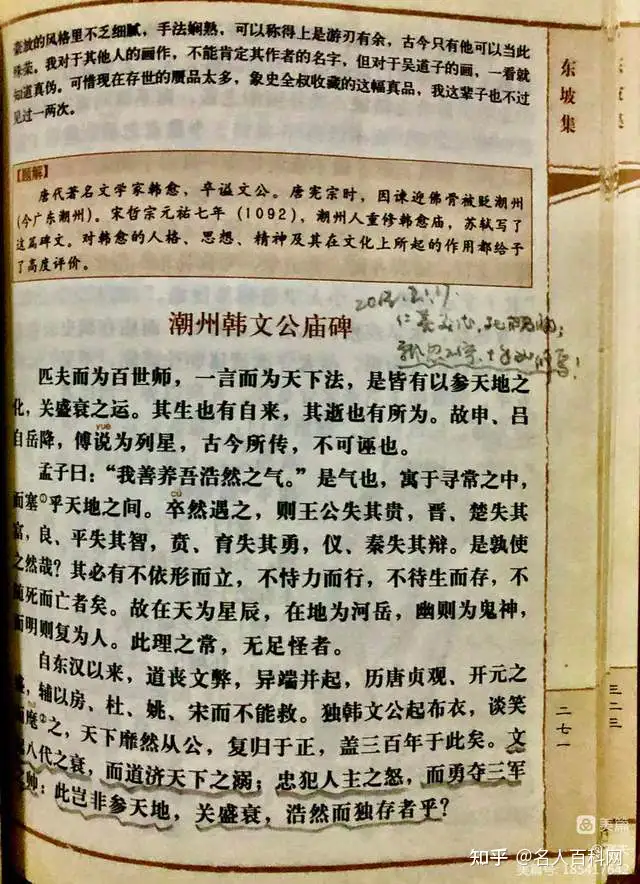 豪放的风格里不乏细腻，手法娴熟，可以称得上是游刃有余，古今只有他可以当此
殊荣。我对于其他人的画作，不能肯定其作者的名字，但对于吴道子的画，一看就
知道真伪。可惜现在存世的赝品太多，象史全叔收藏的这幅真品，我这辈子也不过
见过一两次。
东坡集
【题解】
唐代著名文学家韩愈，卒谥文公。唐宪宗时，因谏迎佛骨被贬潮州
（今广东潮州）。宋哲宗元祐七年（1092），潮州人重修韩愈庙，苏轼写了
这篇碑文。对韩愈的人格、思想、精神及其在文化上所起的作用都给予
了高度评价。
潮州韩文公庙碑
匹夫而为百世师，一言而为天下法，是皆有以参天地之
化，关盛衰之运。其生也有自来，其逝也有所为。故申、吕
自岳降，傅说为列星，古今所传，不可诬也。
yuè
孟子曰：“我善养吾浩然之气。”是气也，寓于寻常之中，
而塞①乎天地之间。卒然遇之，则王公失其贵，晋、楚失其
cù
富，良、平失其智，贲、育失其勇，仪、秦失其辩。是孰使
之然哉？其必有不依形而立，不恃力而行，不待生而存，不
随死而亡者矣。故在天为星辰，在地为河岳，幽则为鬼神，
而明则复为人。此理之常，无足怪者。
自东汉以来，道丧文弊，异端并起，历唐贞观、开元之
盛，辅以房、杜、姚、宋而不能救。独韩文公起布衣，谈笑
而麾②之，天下靡然从公，复归于正，盖三百年于此矣。文
起八代之衰，而道济天下之溺；忠犯人主之怒，而勇夺三军
之帅：此岂非参天地，关盛衰，浩然而独存者乎？
二七一
三二三
美篇
知乎 @名人百科网
美篇号：185417642